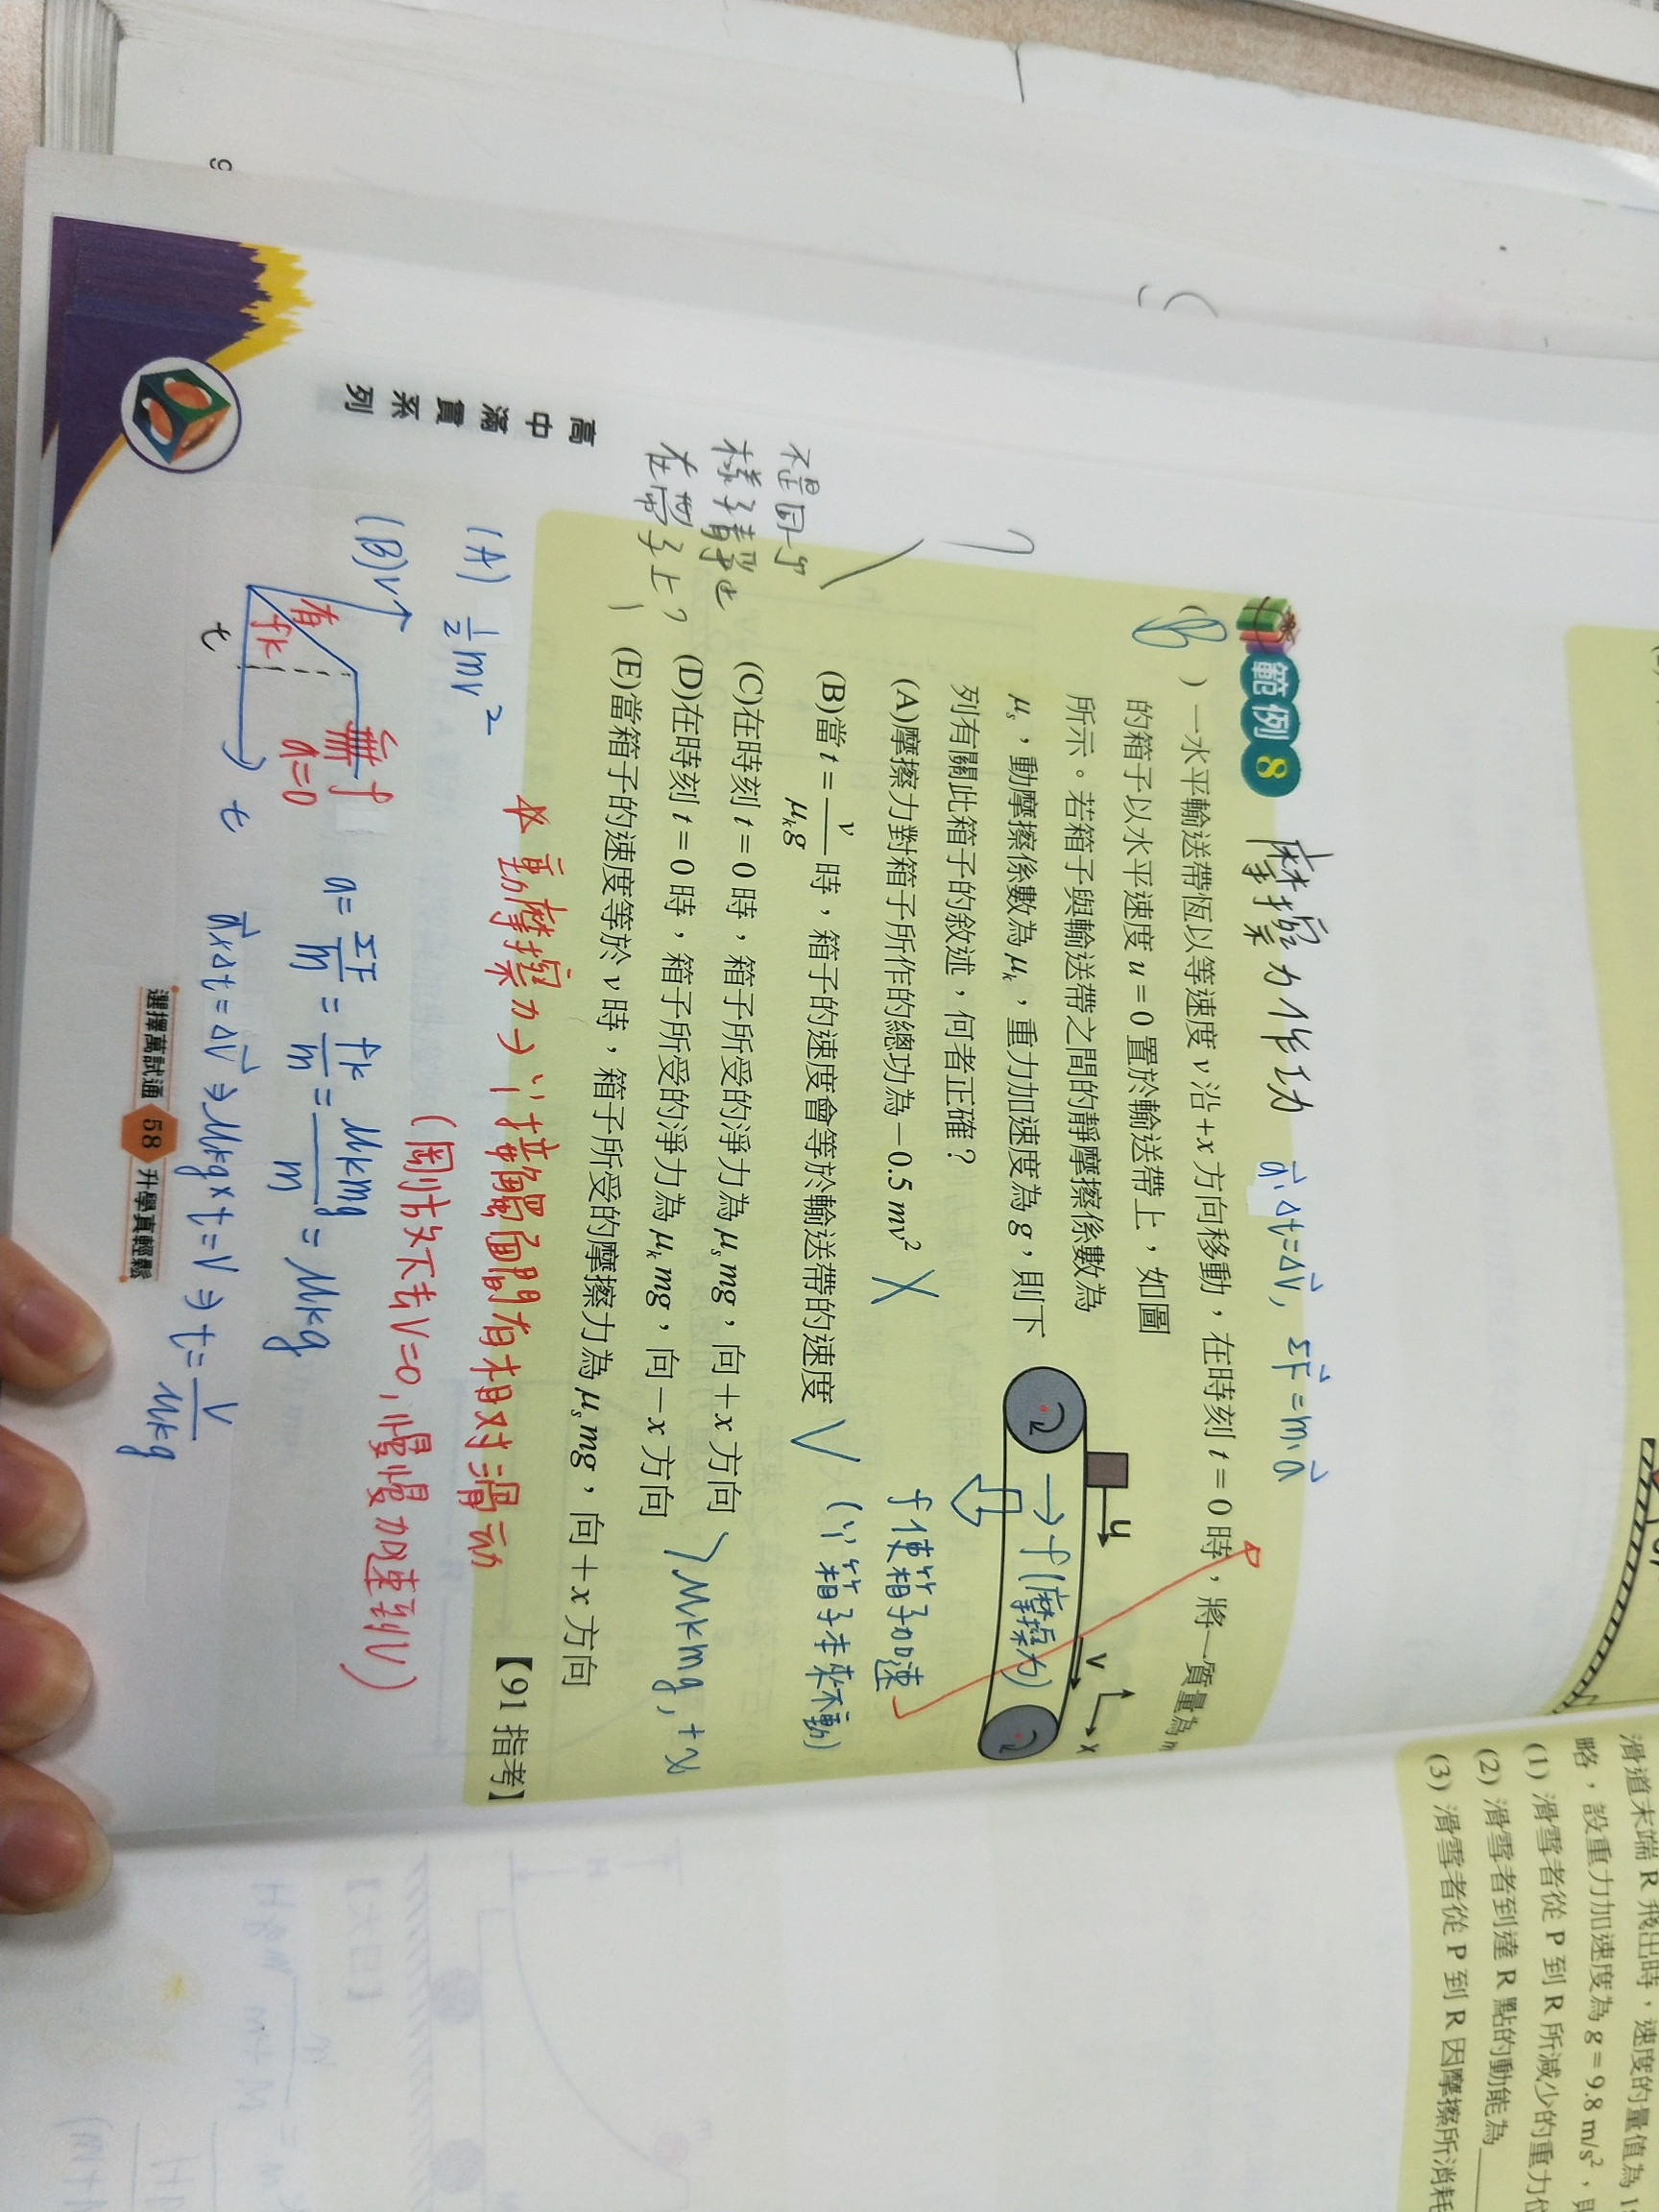 範例 8 摩擦力作功 a·Δt=ΔV, ΣF=m·a
( B ) 一水平輸送帶恆以等速度 v 沿+x 方向移動，在時刻 t = 0 時，將一質量為 m
的箱子以水平速度 u = 0 置於輸送帶上，如圖
所示。若箱子與輸送帶之間的靜摩擦係數為
μs，動摩擦係數為 μk，重力加速度為 g，則下
列有關此箱子的敘述，何者正確？
u
v
x
→f(摩擦力)
f使箱子加速
(∵箱子本來不動)
(A)摩擦力對箱子所作的總功為−0.5 mv² X
(B)當 t = v/μkg 時，箱子的速度會等於輸送帶的速度
(C)在時刻 t = 0 時，箱子所受的淨力為 μs mg，向+x 方向
(D)在時刻 t = 0 時，箱子所受的淨力為 μk mg，向−x 方向
μkmg, +x
(E)當箱子的速度等於 v 時，箱子所受的摩擦力為 μs mg，向+x 方向
【91 指考】
不是因為
樣子靜止
在帶子上?
動摩擦力→∵接觸面間有相對滑動
(剛放下去V=0, 慢慢加速到V)
(A) ½mv²
(B) V
有fk
無f
a=0
t
t
a= ΣF/m = fk/m = μkmg/m = μkg
a×Δt=ΔV ⇒ μkg×t=V ⇒ t= V/μkg
高中滿貫系列
選擇萬試通 58 升學真輕鬆
滑道末端 R 飛出時，速度的量值為
略，設重力加速度為 g = 9.8 m/s²，
(1) 滑雪者從 P 到 R 所減少的重力位
(2) 滑雪者到達 R 點的動能為
(3) 滑雪者從 P 到 R 因摩擦所消耗